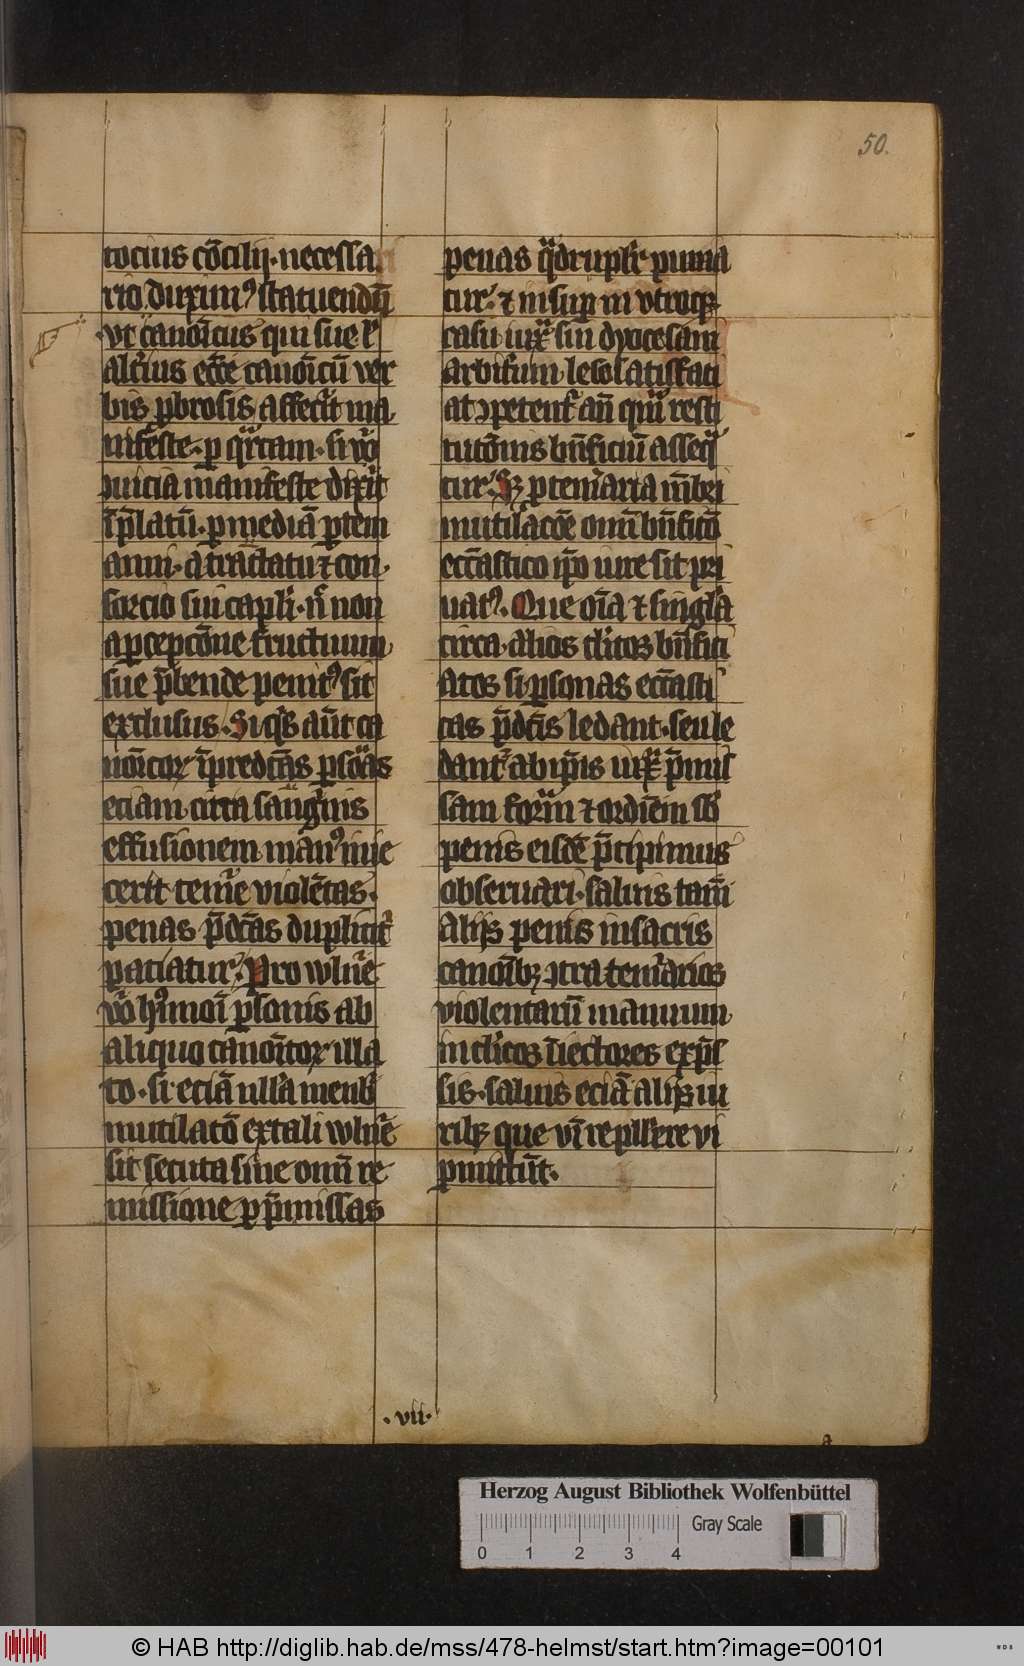 50.
tocius cōcilij. necessa
rio duximꝰ statuendū
vt canoīcus qui sue ł
alt̉ius eccē canoīcū ver
bis ꝓbrosis affec̉it ma
nifeste. ꝑ q̄rtam. si v̊
ꝯuicia manifeste dix̉it
ī p̄latū. ꝑ mediā ꝑtem
anni. a tractatu ⁊ con
sorcio sui capłi. n̄ non
a ꝑcepcōne fructuum
sue p̄bende penitꝰ sit
exclusus. Si q̓s aūt ca
noīcoꝝ ī predc̄as ꝑsōas
eciam citra sāgīnis
effusionem manꝰ inie
cerit tem̉e violētas.
penas p̄dc̄as duplicit̉
paciatur. Pro wlñe
v̊o hꝰmōi ꝑsonis ab
aliquo canoīcoꝝ illa
to. si eciā nłla menb̉
mutilacō ex tali wlñe
sit secuta sine omī re
missione ꝑ p̄missas
penas q̈drupłr punia
tur. ⁊ insuꝑ in vtroqꝫ
casu iux̄ sui dyocesani
arbit̉um leso satisfaci
at ꝯpetent̉ an̄ q̈m resti
tutōnis bn̄ficiū asseq̄
tur. Sꝫ ꝓ tem̉aria mēbri
mutilacōe omī bn̄ficō
ecc̄astico ip̄o iure sit pri
uatꝰ. Que oīa ⁊ singła
circa alios cl̉icos bn̄fici
atos si ꝑsonas ecc̄asti
cas p̄dc̄is ledant. seu le
dant̉ ab ip̄is iux̄ p̄mis
sam formā ⁊ ordīem sb̉
penis eisdē p̄cipimus
obseruari. saluis tam̄
alijs penis in sacris
canoībꝫ ꝯtra tem̉arios
violentarū manuum
in cl̉icos īiectores exp̄s
sis. saluis eciā alijs iu
ribꝫ que vī repell̉e vi
ꝑmittūt.
.vii.
Herzog August Bibliothek Wolfenbüttel
0 1 2 3 4
Gray Scale
© HAB http://diglib.hab.de/mss/478-helmst/start.htm?image=00101